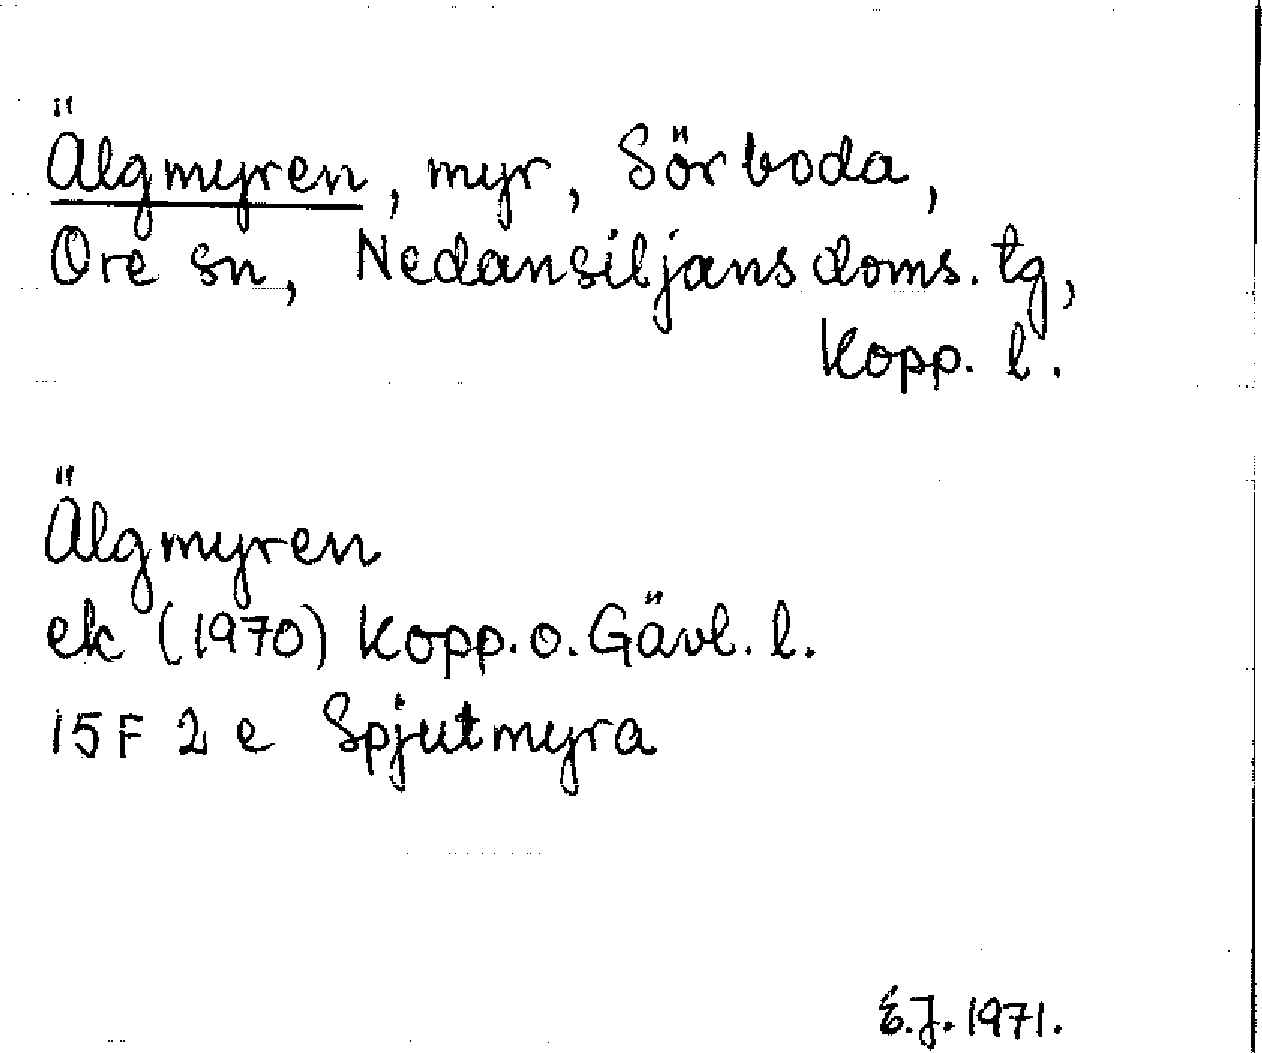 Älgmyren, myr, Sörboda,
Ore sn, Nedansiljans doms. tg,
Kopp. l.
Älgmyren
ek (1970) Kopp. o. Gävl. l.
15 F 2 e Spjutmyra
E.J. 1971.